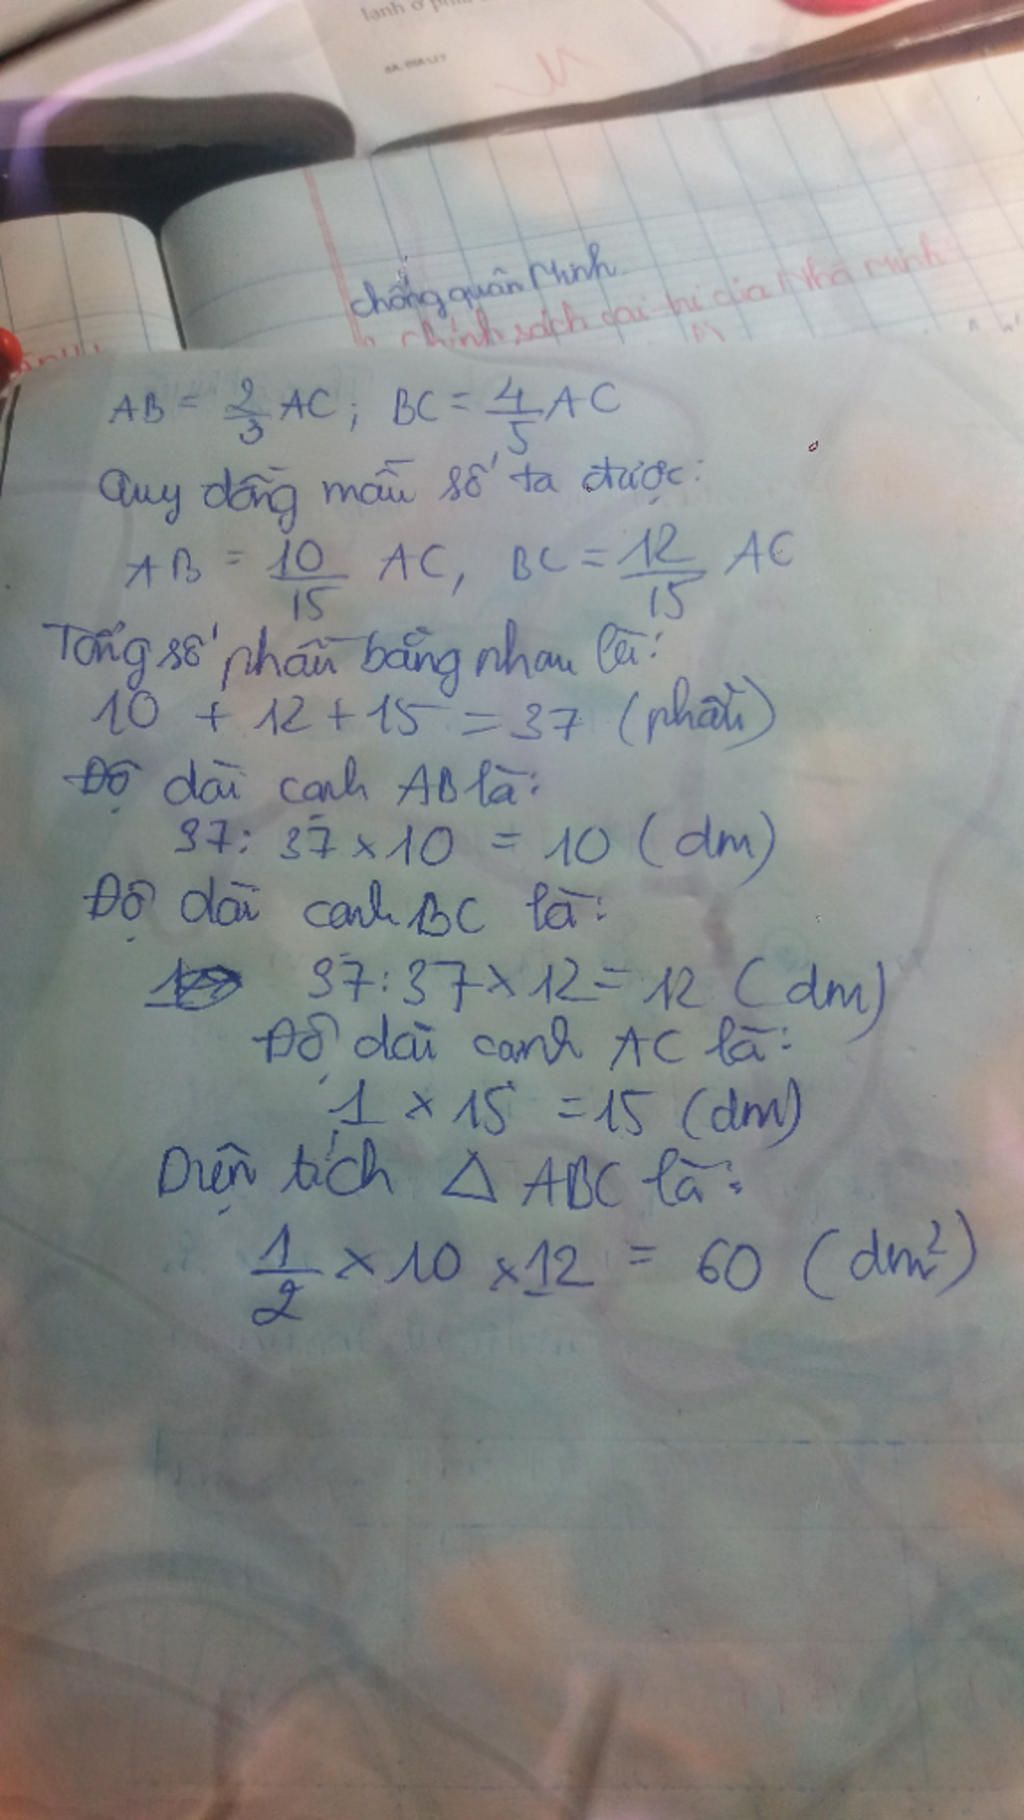 lạnh ở
chống quân Minh
chính sách cai trị của nhà Minh
AB = 2/3 AC; BC = 4/5 AC
Quy đồng mẫu số ta được:
AB = 10/15 AC, BC = 12/15 AC
Tổng số phần bằng nhau là:
10 + 12 + 15 = 37 (phần)
Độ dài cạnh AB là:
37: 37 x 10 = 10 (dm)
Độ dài cạnh BC là:
37: 37 x 12 = 12 (dm)
Độ dài cạnh AC là:
1 x 15 = 15 (dm)
Diện tích Δ ABC là:
1/2 x 10 x 12 = 60 (dm²)